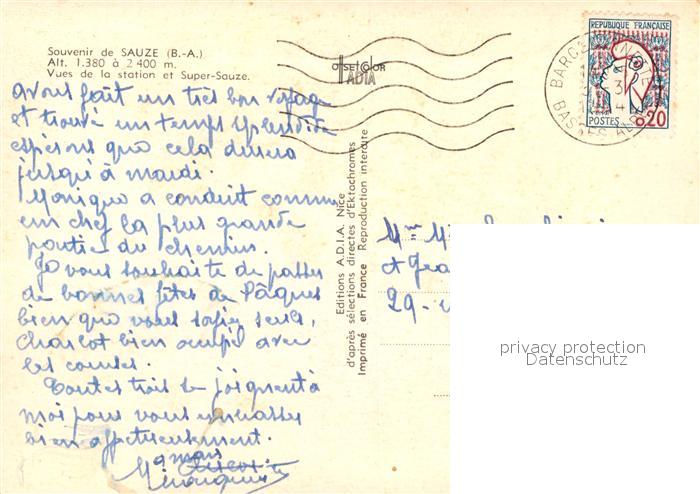 Souvenir de SAUZE (B.-A.)
Alt. 1.380 à 2 400 m.
Vues de la station et Super-Sauze.
OFFSETCOLOR
ADIA
REPUBLIQUE FRANÇAISE
POSTES 0,20
BASSES ALPES
avons fait un très bon voyage
et trouvé un temps splendide
espérons que cela durera
jusqu'à mardi.
Monique a conduit comme
un chef la plus grande
partie du chemin.
Je vous souhaite de passer
de bonnes fêtes de Pâques
bien que vous soyiez seuls,
Charlot bien occupé avec
les comptes.
Toutes trois se joignent à
moi pour vous embrasser
bien affectueusement.
Editions A.D.I.A. Nice
d'après sélections directes d'Ektachromes
Imprimé en France Reproduction interdite
Mme
et
29
privacy protection
Datenschutz